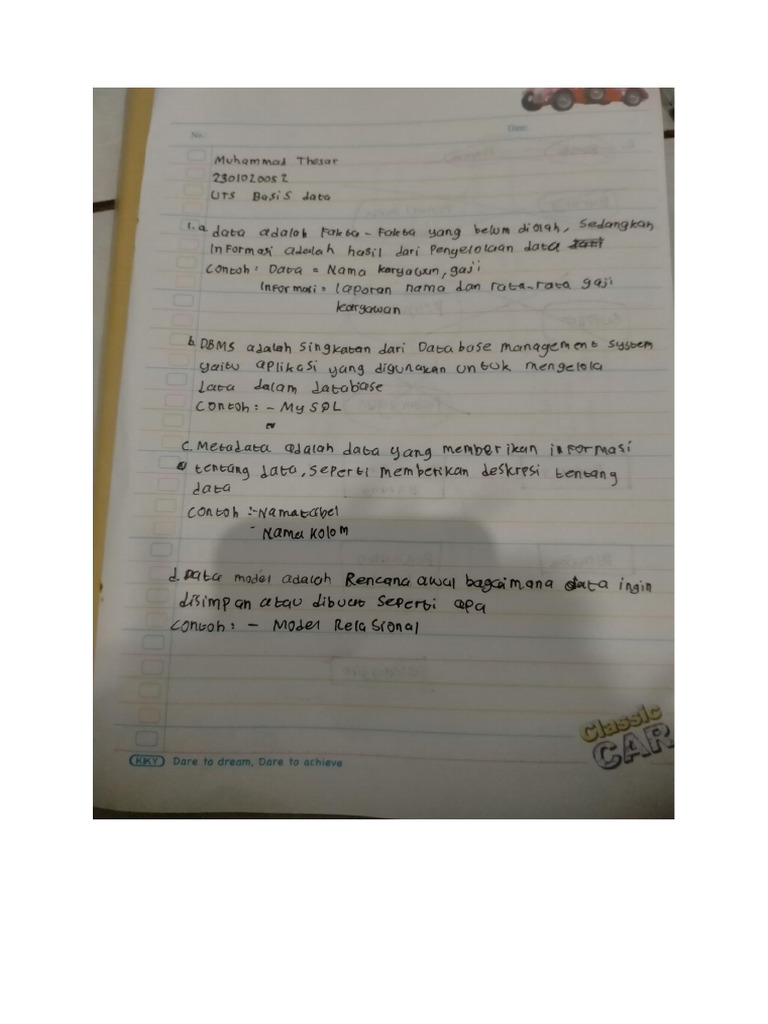 No.
Date:
Muhammad Thesar
2301020052
UTS Basis data
1. a. data adalah Fakta - Fakta yang belum diolah, Sedangkan
Informasi adalah hasil dari Pengelolaan data
Contoh : Data = Nama karyawan, gaji
Informasi = laporan nama dan rata-rata gaji
karyawan
b. DBMS adalah Singkatan dari Database management System
yaitu aplikasi yang digunakan untuk mengelola
data dalam database
Contoh : - MySQL
c. Metadata adalah data yang memberikan informasi
tentang data, seperti memberikan deskresi tentang
data
Contoh :- Nama tabel
- Nama kolom
d. Data model adalah Rencana awal bagaimana data ingin
disimpan atau dibuat seperti apa
Contoh : - Model Relasional
Classic
CAR
KKY Dare to dream, Dare to achieve